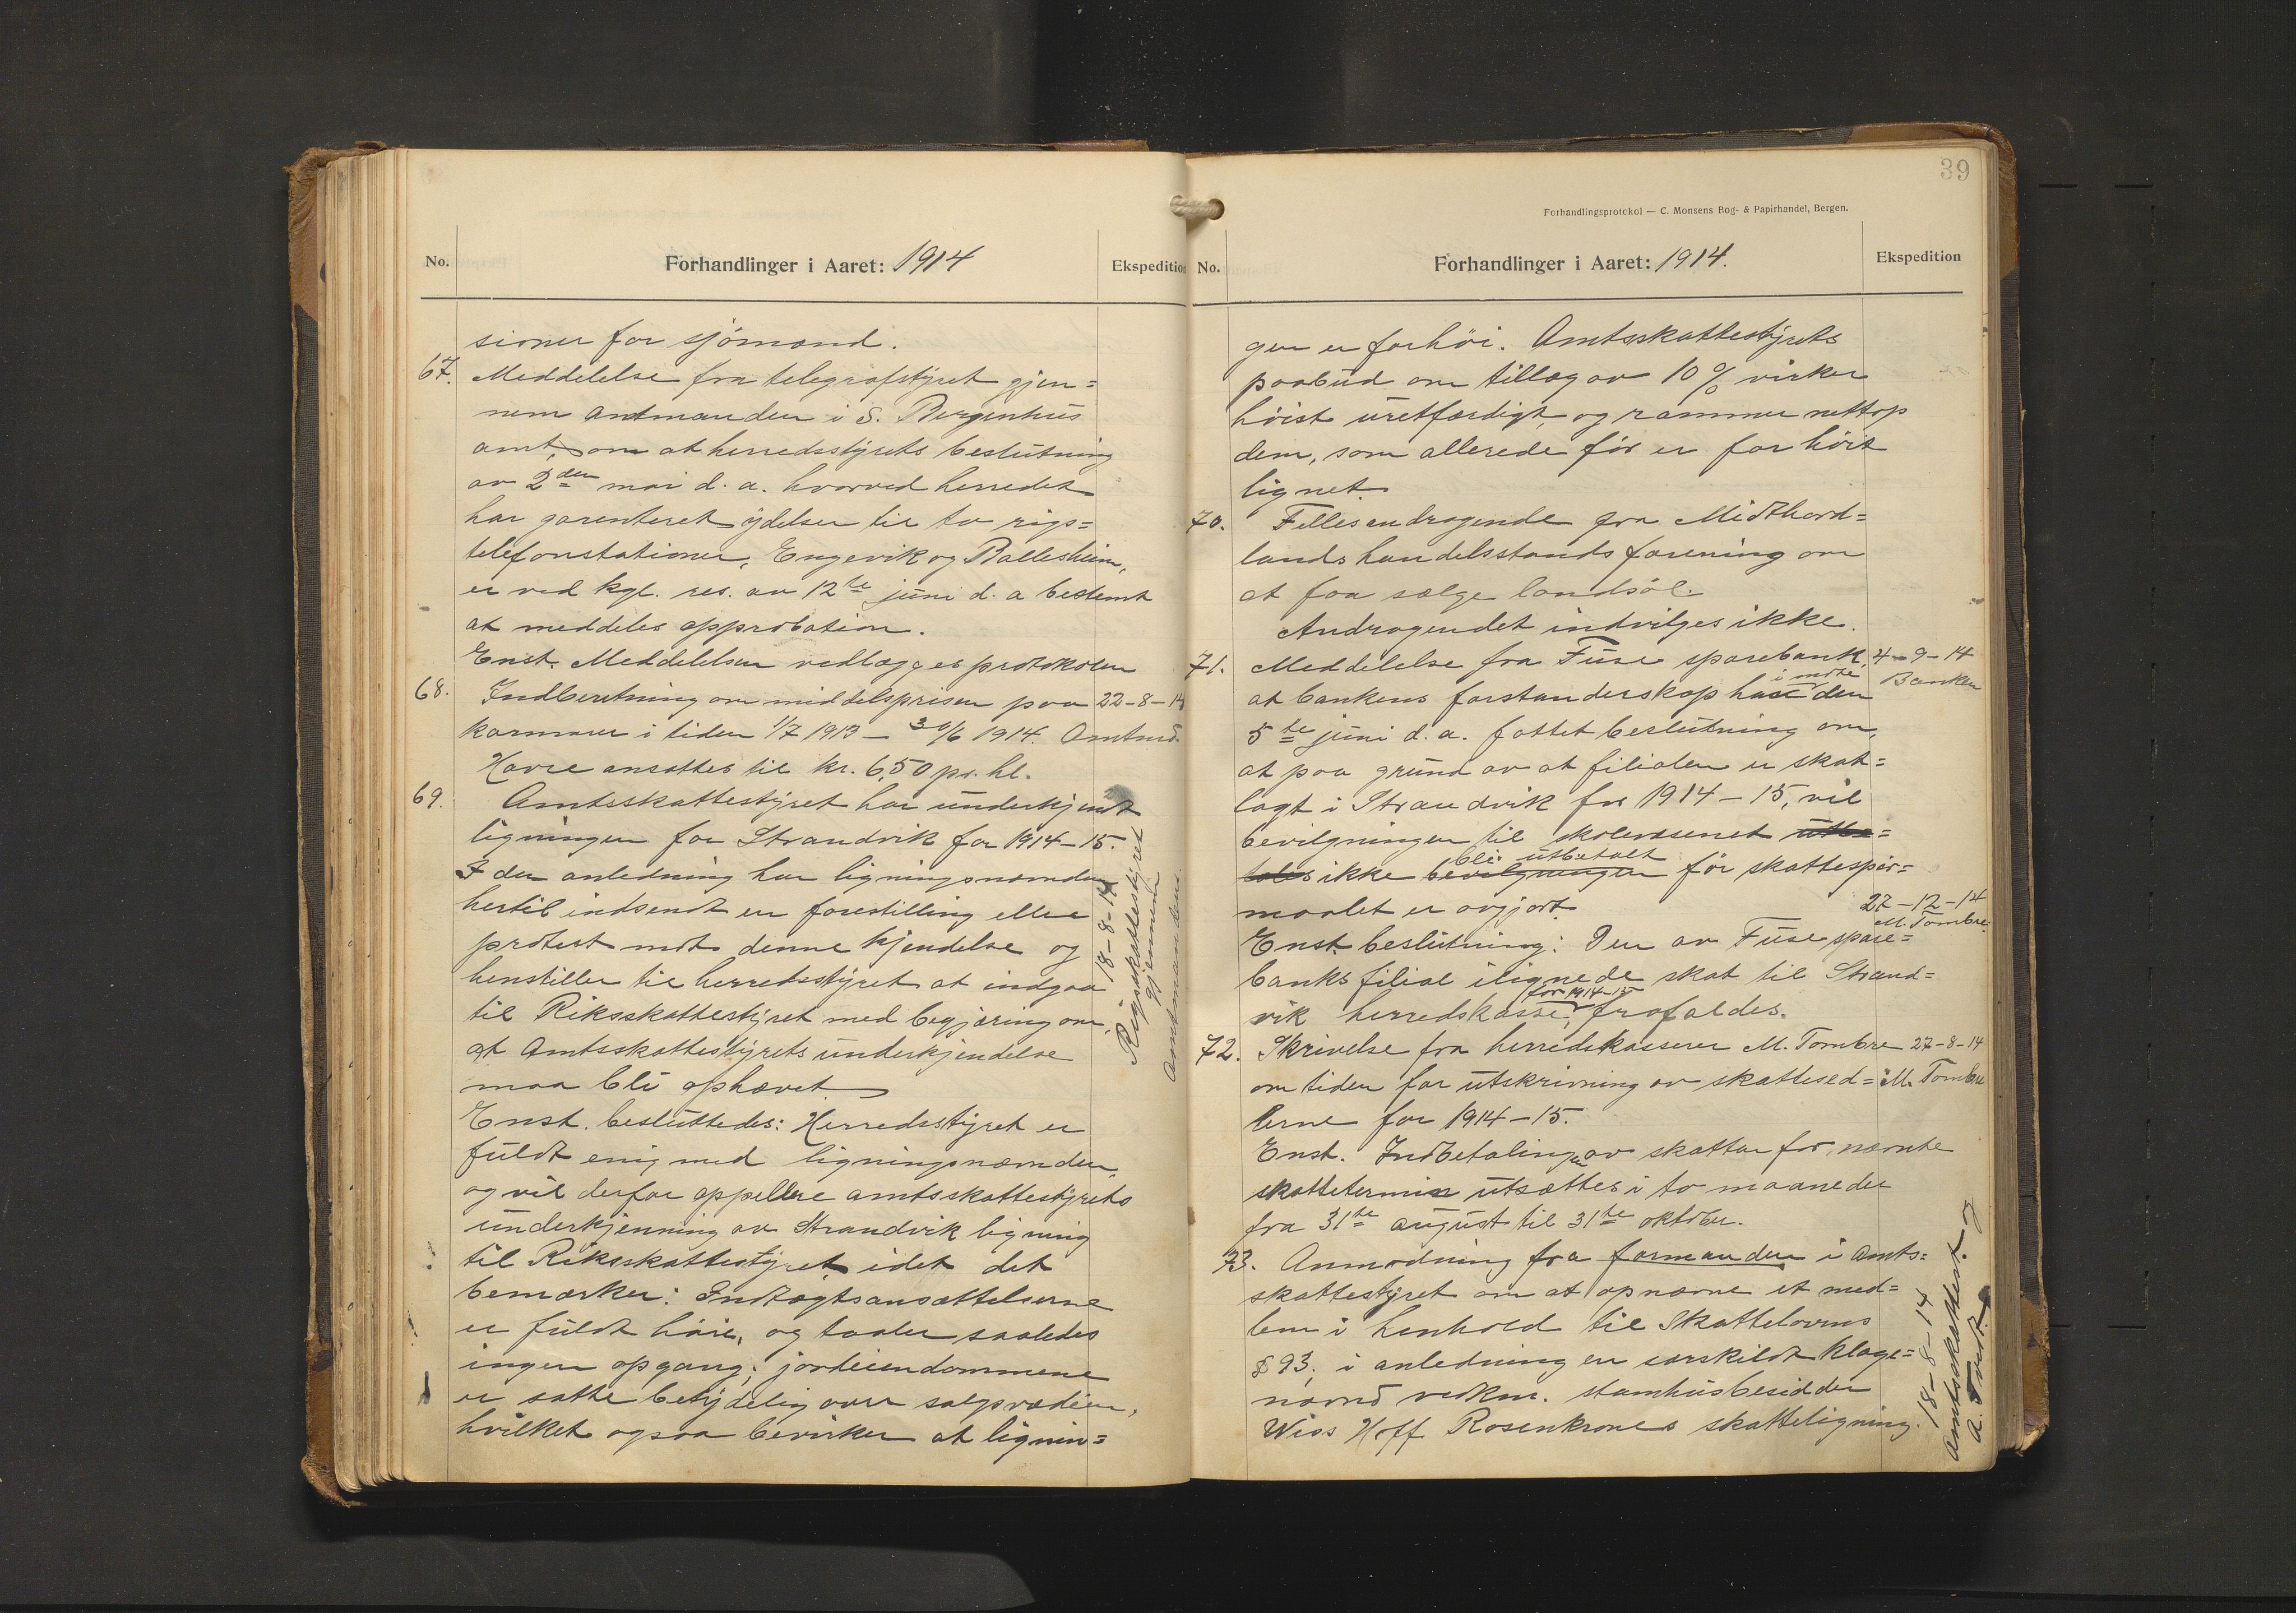 No.
Forhandlinger i Aaret: 1914
Ekspedition
sioner for sjömænd.
67. Meddelelse fra telegrafstyret gjen=
nem amtmanden i S. Bergenhus
amt, om at herredsstyrets beslutning
av 2den mai d. a. hvorved herredet
har garenteret ydelser til to rigs=
telefonstationer, Engevik og Ballesheim,
er ved kgl. res. av 12te juni d. a bestemt
at meddeles approbation.
Enst. Meddelelsen vedlægges protokolen
68. Indberetning om middelprisen paa
kornvarer i tiden 1/7 1913 — 30/6 1914.
22-8-14
Amtmd.
Havre ansattes til kr. 6,50 pr. hl.
69. Amtsskattestyret har underkjendt
ligningen for Strandvik for 1914-15.
I den anledning har ligningsnævnden
hertil indsendt en forestilling eller
protest mot denne kjendelse og
henstiller til herredsstyret at indgaa
til Riksskattestyret med begjæring om,
at Amtsskattestyrets underkjendelse
maa bli ophævet.
18-8-14
Rigsskattestyret
gjennem
Amtmanden.
Enst. besluttedes: Herredsstyret er
fuldt enig med ligningsnævnden,
og vil derfor appellere amtsskattestyrets
underkjenning av Strandvik ligning
til Riksskattestyret idet det
bemærker: Indtægtsansættelserne
er fuldt höie, og taaler saaledes
ingen opgang; jordeiendommene
er satte betydelig over salgsværdien,
hvilket ogsaa bevirker at lignin=
39
Forhandlingsprotokol — C. Monsens Bog- & Papirhandel, Bergen.
No.
Forhandlinger i Aaret: 1914.
Ekspedition
gen er for höi. Amtsskattestyrets
paabud om tillæg av 10 % virker
höist uretfærdigt, og rammer nettop
dem, som allerede för er for höit
lignet.
70. Fellesandragende fra Midthord=
lands handelsstands forening om
at faa sælge landsöl.
Andragendet indvilges ikke.
71. Meddelelse fra Fuse sparebank,
4-9-14
Banken
at bankens forstanderskap har i möte den
5te juni d. a. fattet beslutning om,
at paa grund av at filialen er skat=
lagt i Strandvik for 1914-15, vil
bevilgningen til skolevæsenet utbe=
tales ikke bevilgningen bli utbetalt för skattespör=
maalet er avgjort.
22-12-14
M. Tombre
Enst. beslutning: Den av Fuse spare=
banks filial ilignede skat til Strand=
vik herredskasse for 1914-15, frafaldes.
72. Skrivelse fra herredskasserer M. Tombre
27-8-14
M. Tombre
om tiden for utskrivning av skattesed=
lerne for 1914-15.
Enst. Indbetalingen av skatten for nævnte
skattetermin utsættes i to maaneder
fra 31te august til 31te oktober.
73. Anmodning fra formanden i Amts=
skattestyret om at opnævne et med=
lem i henhold til Skattelovens
§ 93, i anledning en særskildt klage=
nævnd vedkm. stamhusbesidder
Wiss Hoff Rosenkrones skatteligning.
18-8-14
Amtsskattest. og
A. Tveit.